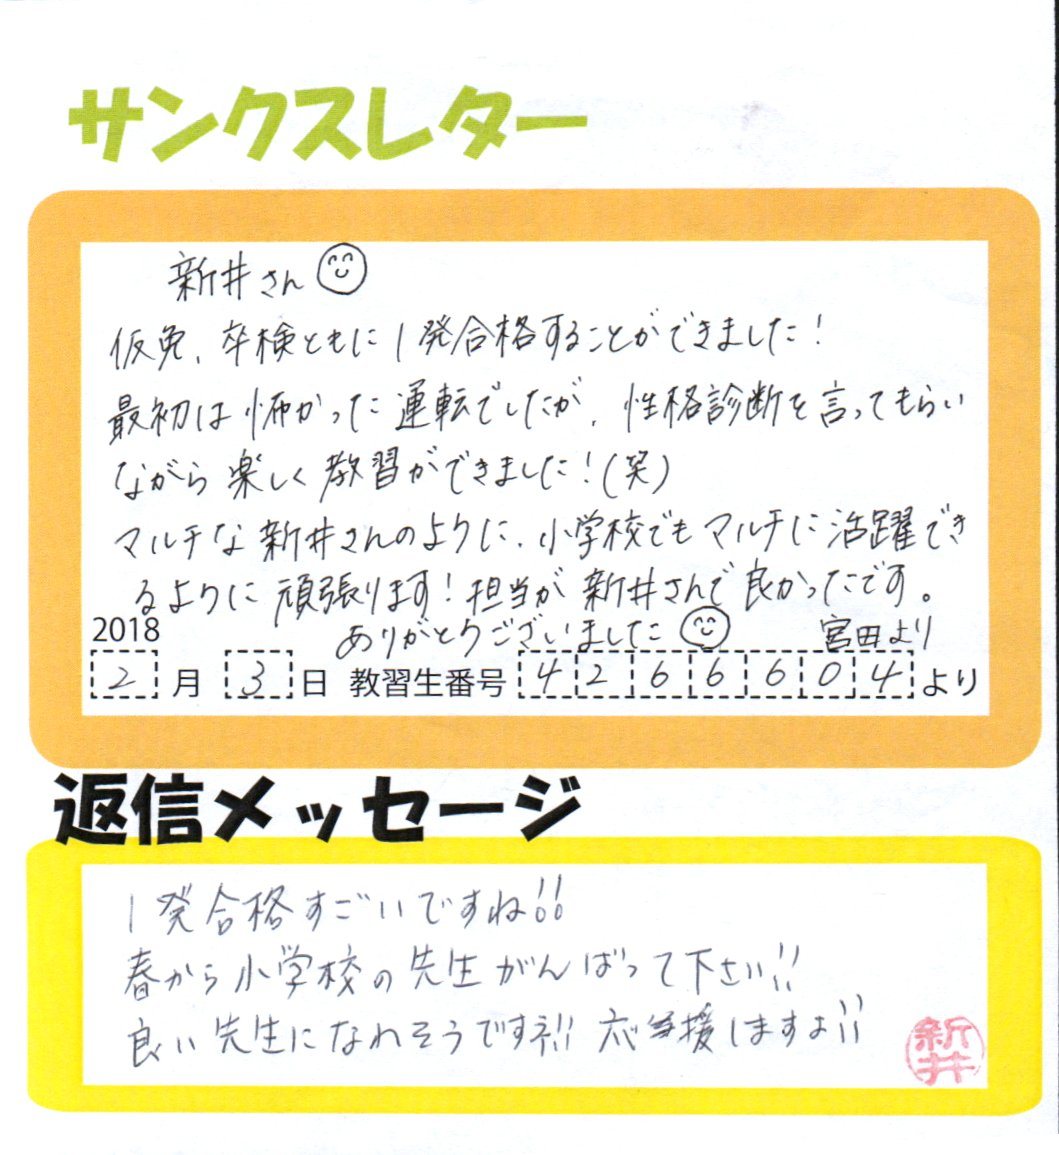 サンクスレター
新井さん
仮免、卒検ともに1発合格することができました!
最初は怖かった運転でしたが、性格診断を言ってもらい
ながら楽しく教習ができました!(笑)
マルチな新井さんのように、小学校でもマルチに活躍でき
るように頑張ります!担当が新井さんで良かったです。
ありがとうございました 宮田より
2018
2月3日 教習生番号 4266604より
返信メッセージ
1発合格すごいですね!!
春から小学校の先生がんばって下さい!!
良い先生になれそうですネ!! 応援しますよ!!
新井